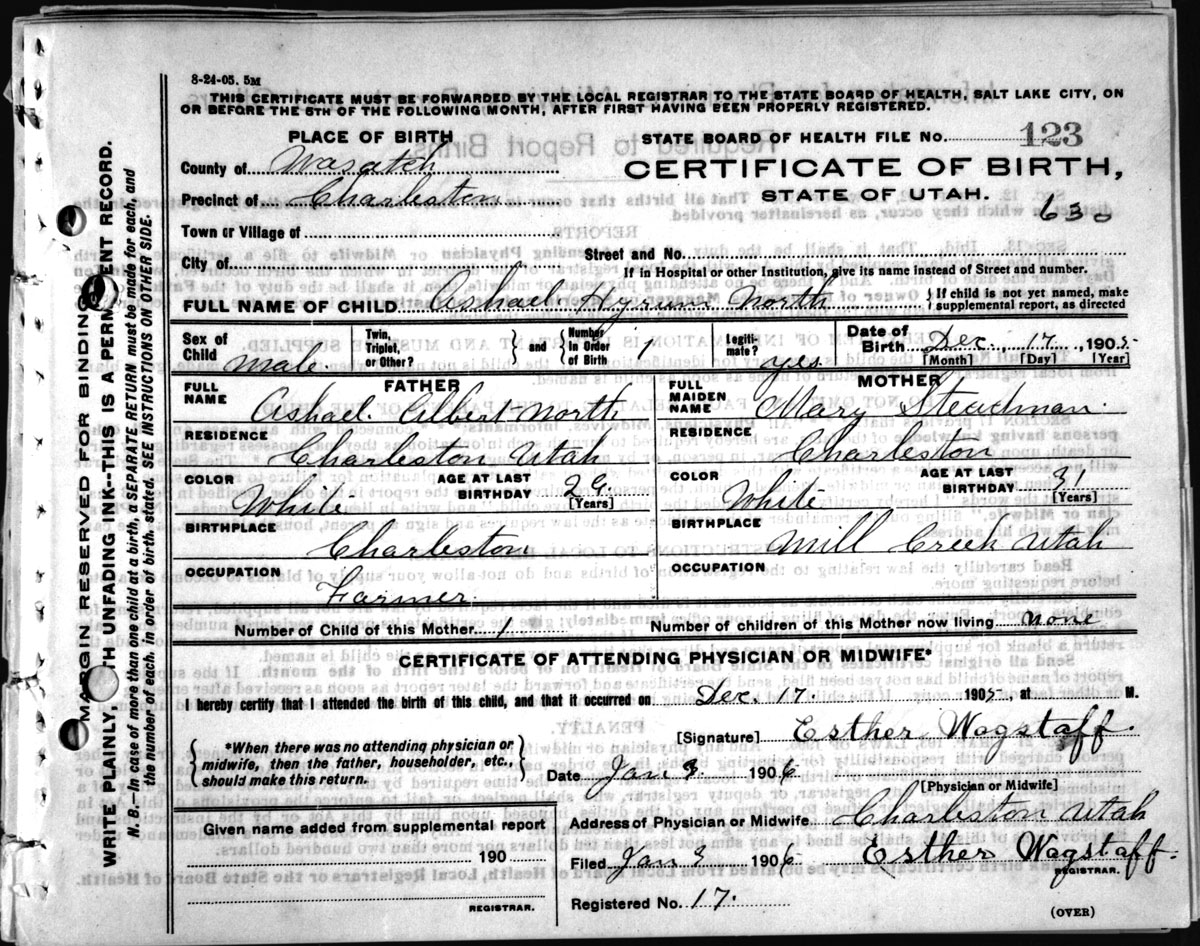 8-24-05. 5M
THIS CERTIFICATE MUST BE FORWARDED BY THE LOCAL REGISTRAR TO THE STATE BOARD OF HEALTH, SALT LAKE CITY, ON
OR BEFORE THE 5TH OF THE FOLLOWING MONTH, AFTER FIRST HAVING BEEN PROPERLY REGISTERED.
PLACE OF BIRTH
STATE BOARD OF HEALTH FILE No. 123
County of Wasatch
CERTIFICATE OF BIRTH,
Precinct of Charleston
STATE OF UTAH.
630
Town or Village of
Street and No.
City of
If in Hospital or other Institution, give its name instead of Street and number.
FULL NAME OF CHILD Ashael Hyrum North } If child is not yet named, make supplemental report, as directed
Sex of Child Male Twin, Triplet, or Other? } and { Number in Order of Birth 1 Legitimate? yes Date of Birth Dec. 17, 1905
[Month] [Day] [Year]
FATHER
MOTHER
FULL NAME Ashael Gilbert North
FULL MAIDEN NAME Mary Steadman
RESIDENCE Charleston Utah
RESIDENCE Charleston
COLOR White AGE AT LAST BIRTHDAY 29 [Years]
COLOR White AGE AT LAST BIRTHDAY 31 [Years]
BIRTHPLACE Charleston
BIRTHPLACE Mill Creek Utah
OCCUPATION Farmer
OCCUPATION
Number of Child of this Mother 1
Number of children of this Mother now living none
CERTIFICATE OF ATTENDING PHYSICIAN OR MIDWIFE*
I hereby certify that I attended the birth of this child, and that it occurred on Dec. 17 1905 at M.
[Signature] Esther Wagstaff
{ *When there was no attending physician or midwife, then the father, householder, etc., should make this return. }
Date Jan 3. 1906
[Physician or Midwife]
Given name added from supplemental report
190
REGISTRAR.
Address of Physician or Midwife Charleston Utah
Filed Jan 3 1906 Esther Wagstaff.
REGISTRAR.
Registered No. 17.
(OVER)
MARGIN RESERVED FOR BINDING
WRITE PLAINLY, WITH UNFADING INK—THIS IS A PERMANENT RECORD.
N. B.—In case of more than one child at a birth, a SEPARATE RETURN must be made for each, and
the number of each, in order of birth, stated. SEE INSTRUCTIONS ON OTHER SIDE.